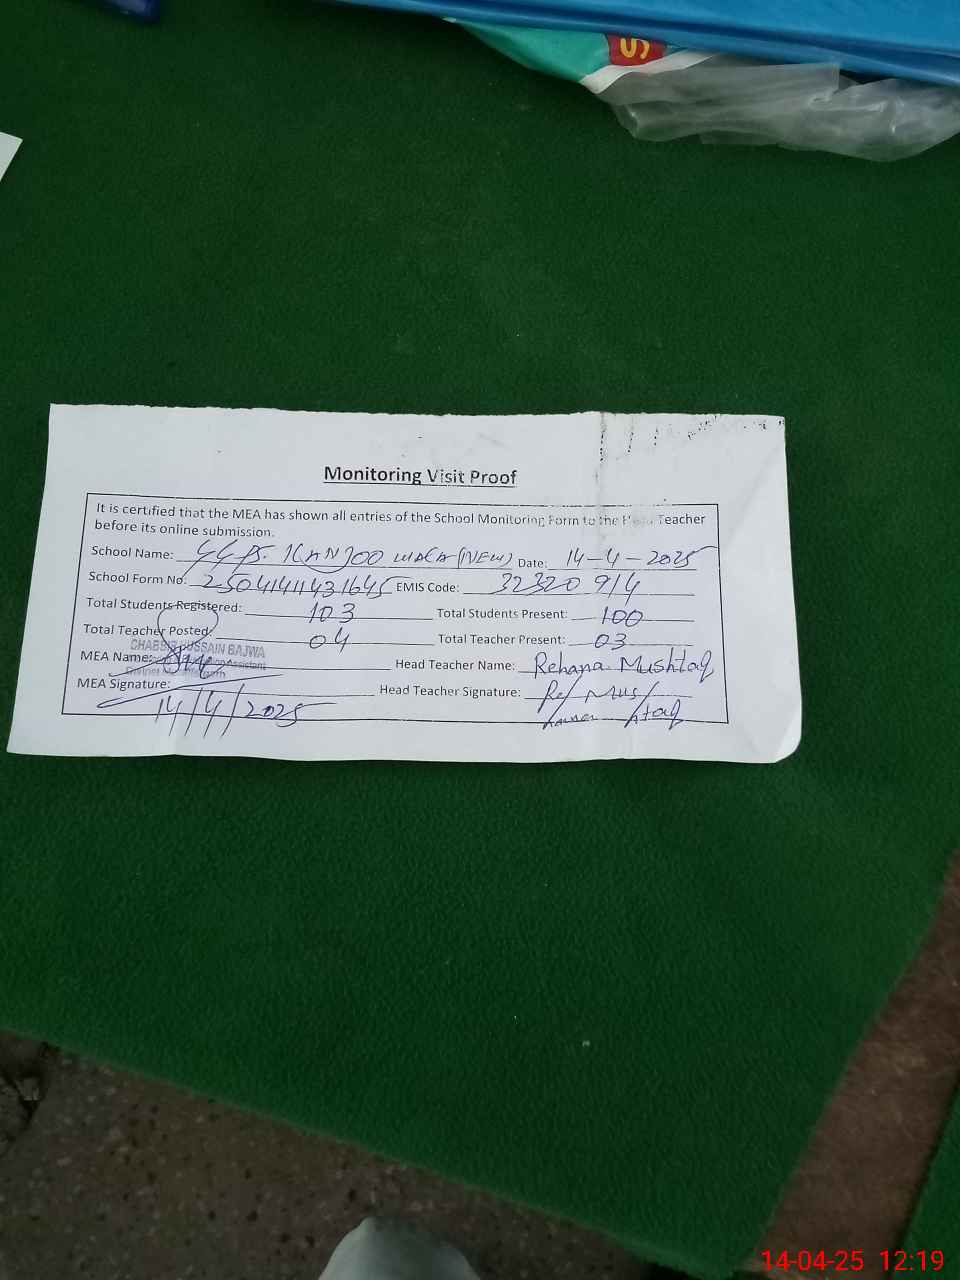 S
Monitoring Visit Proof
It is certified that the MEA has shown all entries of the School Monitoring Form to the Head Teacher
before its online submission.
School Name: GGPS. KANJOO WALA (NEW) Date: 14-4-2025
School Form No: 25041411431645 EMIS Code: 32320914
Total Students Registered: 103 Total Students Present: 100
Total Teacher Posted: 04 Total Teacher Present: 03
HUSSAIN BAJWA
MEA Name: Assistant Head Teacher Name: Rehana Mushtaq
District
MEA Signature: Head Teacher Signature:
14/4/2025
14-04-25 12:19